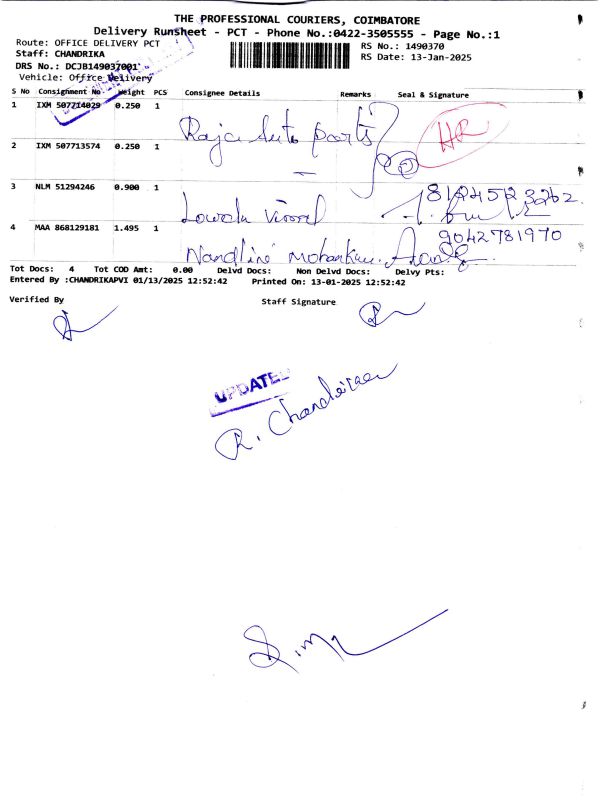 THE PROFESSIONAL COURIERS, COIMBATORE
Delivery Runsheet - PCT - Phone No.:0422-3505555 - Page No.:1
Route: OFFICE DELIVERY PCT
RS No.: 1490370
Staff: CHANDRIKA
RS Date: 13-Jan-2025
DRS No.: DCJB149037001
Vehicle: Office Delivery
S No Consignment No Weight PCS Consignee Details Remarks Seal & Signature
1 IXM 507714029 0.250 1
Raja Auto parts HR
2 IXM 507713574 0.250 1
3 NLM 51294246 0.900 1
8124523262
4 MAA 868129181 1.495 1
9042781970
Nandlini
Tot Docs: 4 Tot COD Amt: 0.00 Delvd Docs: Non Delvd Docs: Delvy Pts:
Entered By :CHANDRIKAPVI 01/13/2025 12:52:42 Printed On: 13-01-2025 12:52:42
Verified By Staff Signature
UPDATED